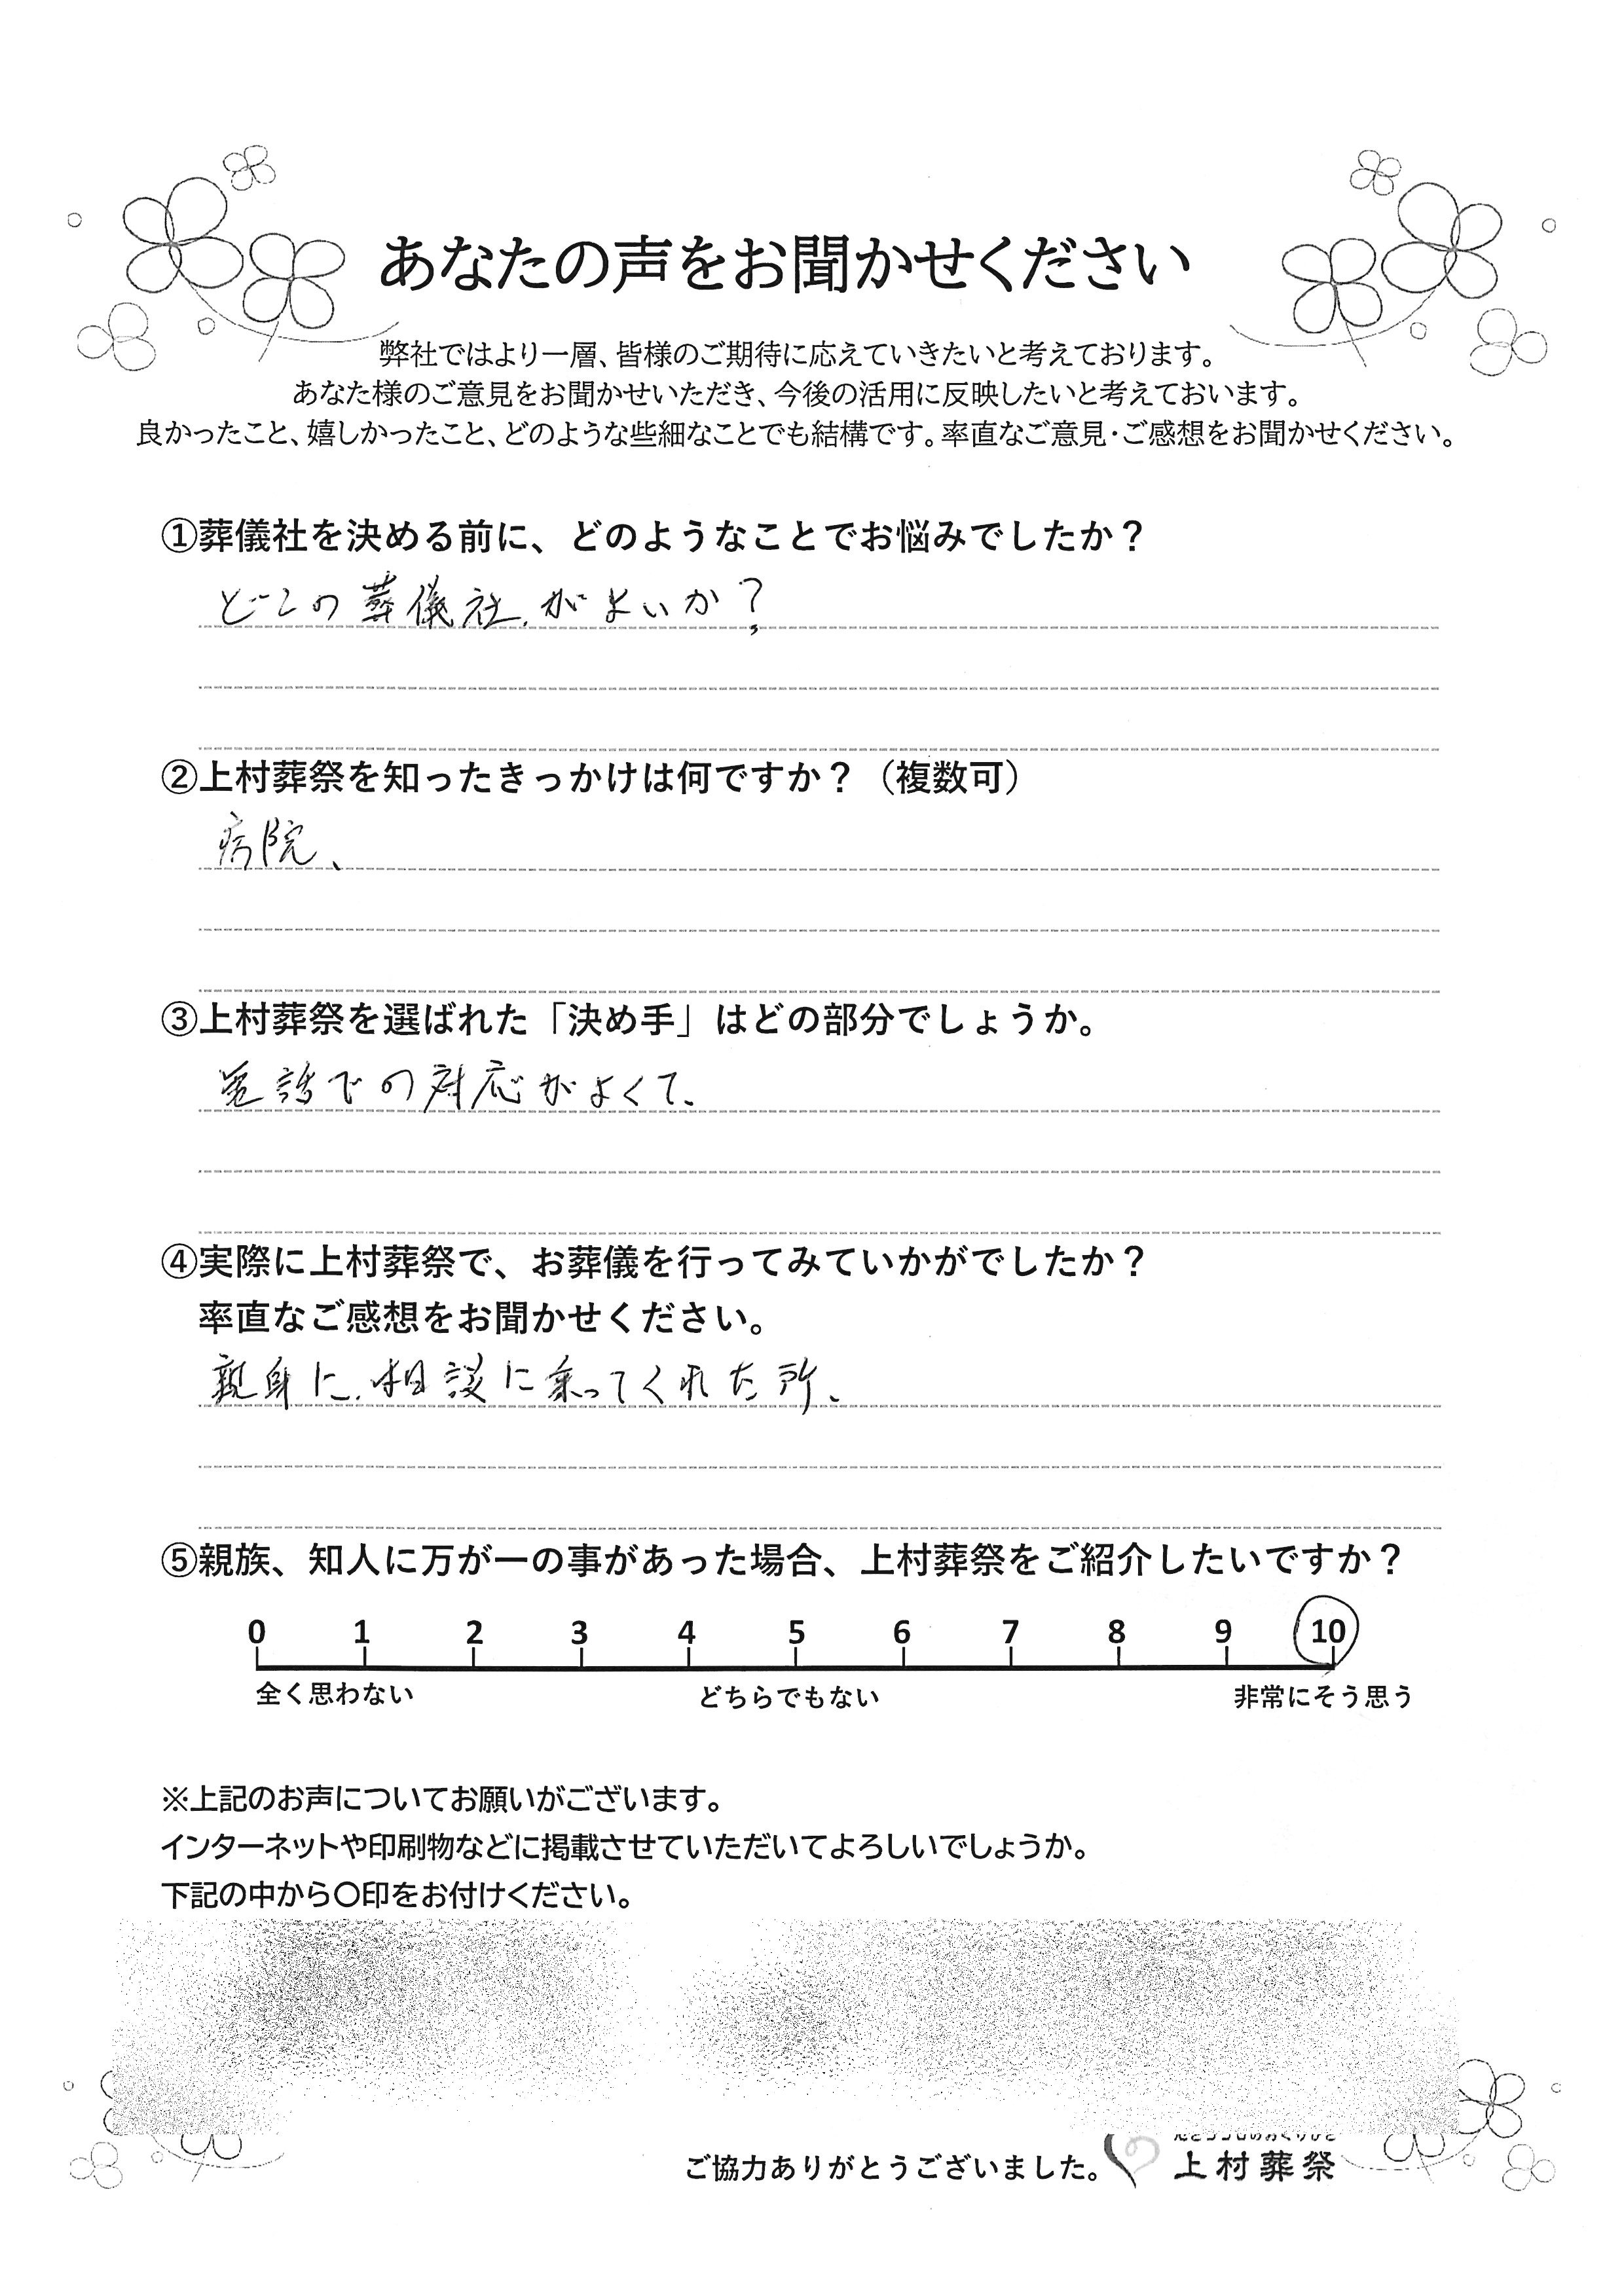 あなたの声をお聞かせください
弊社ではより一層、皆様のご期待に応えていきたいと考えております。
あなた様のご意見をお聞かせいただき、今後の活用に反映したいと考えておいます。
良かったこと、嬉しかったこと、どのような些細なことでも結構です。率直なご意見・ご感想をお聞かせください。
①葬儀社を決める前に、どのようなことでお悩みでしたか？
どこの葬儀社がよいか？
②上村葬祭を知ったきっかけは何ですか？（複数可）
病院、
③上村葬祭を選ばれた「決め手」はどの部分でしょうか。
電話での対応がよくて、
④実際に上村葬祭で、お葬儀を行ってみていかがでしたか？
率直なご感想をお聞かせください。
親身に、相談に乗ってくれた所、
⑤親族、知人に万が一の事があった場合、上村葬祭をご紹介したいですか？
0 1 2 3 4 5 6 7 8 9 10
全く思わない どちらでもない 非常にそう思う
※上記のお声についてお願いがございます。
インターネットや印刷物などに掲載させていただいてよろしいでしょうか。
下記の中から〇印をお付けください。
ご協力ありがとうございました。 上村葬祭